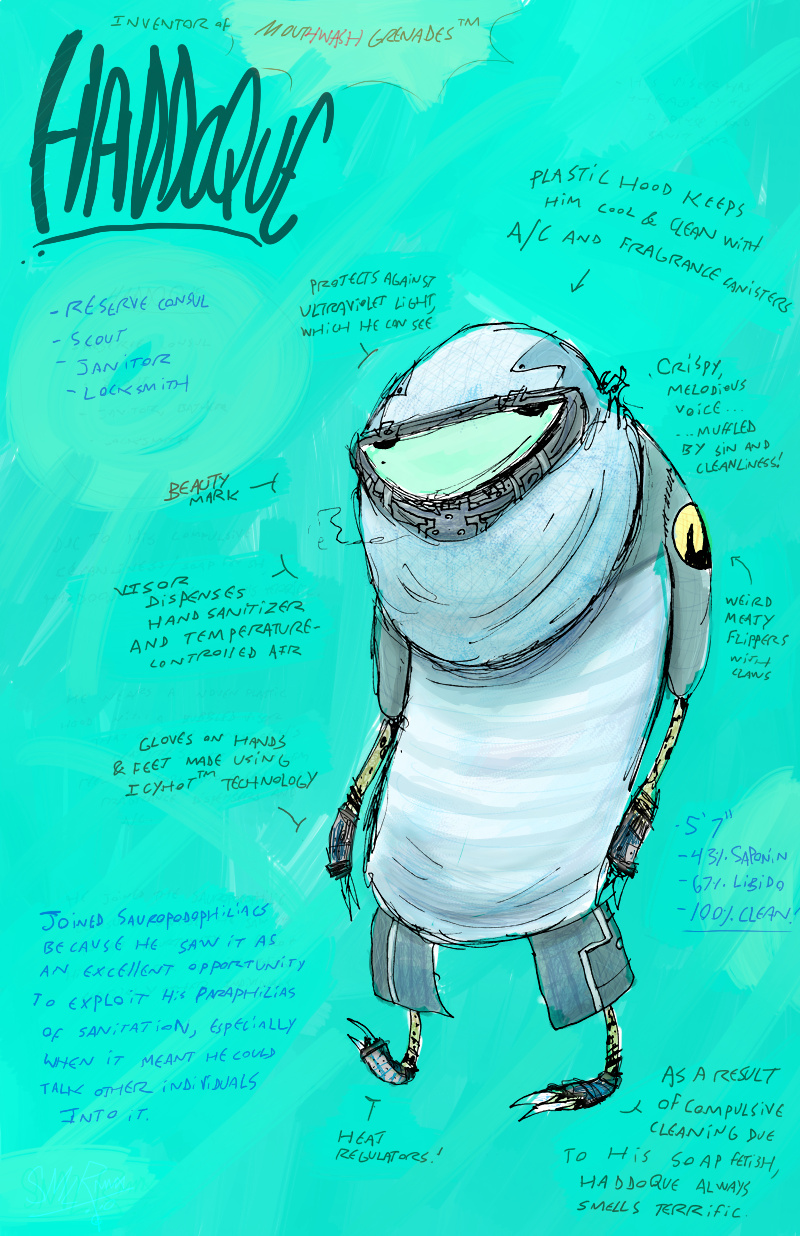 INVENTOR OF
MOUTHWASH GRENADES™
HADDOQUE
PLASTIC HOOD KEEPS
HIM COOL & CLEAN WITH
A/C AND FRAGRANCE CANISTERS
PROTECTS AGAINST
ULTRAVIOLET LIGHT,
WHICH HE CAN SEE
- RESERVE CONSUL
- SCOUT
- JANITOR
- LOCKSMITH
CRISPY,
MELODIOUS
VOICE...
...MUFFLED
BY SIN AND
CLEANLINESS!
BEAUTY
MARK
VISOR
DISPENSES
HAND SANITIZER
AND TEMPERATURE-
CONTROLLED AIR
WEIRD
MEATY
FLIPPERS
WITH
CLAWS
GLOVES ON HANDS
& FEET MADE USING
ICYHOT™ TECHNOLOGY
- 5'7"
- 43% SAPONIN
- 67% LIBIDO
- 100% CLEAN!
JOINED SAUROPODOPHILIACS
BECAUSE HE SAW IT AS
AN EXCELLENT OPPORTUNITY
TO EXPLOIT HIS PARAPHILIAS
OF SANITATION, ESPECIALLY
WHEN IT MEANT HE COULD
TALK OTHER INDIVIDUALS
INTO IT.
HEAT
REGULATORS!
AS A RESULT
OF COMPULSIVE
CLEANING DUE
TO HIS SOAP FETISH,
HADDOQUE ALWAYS
SMELLS TERRIFIC.